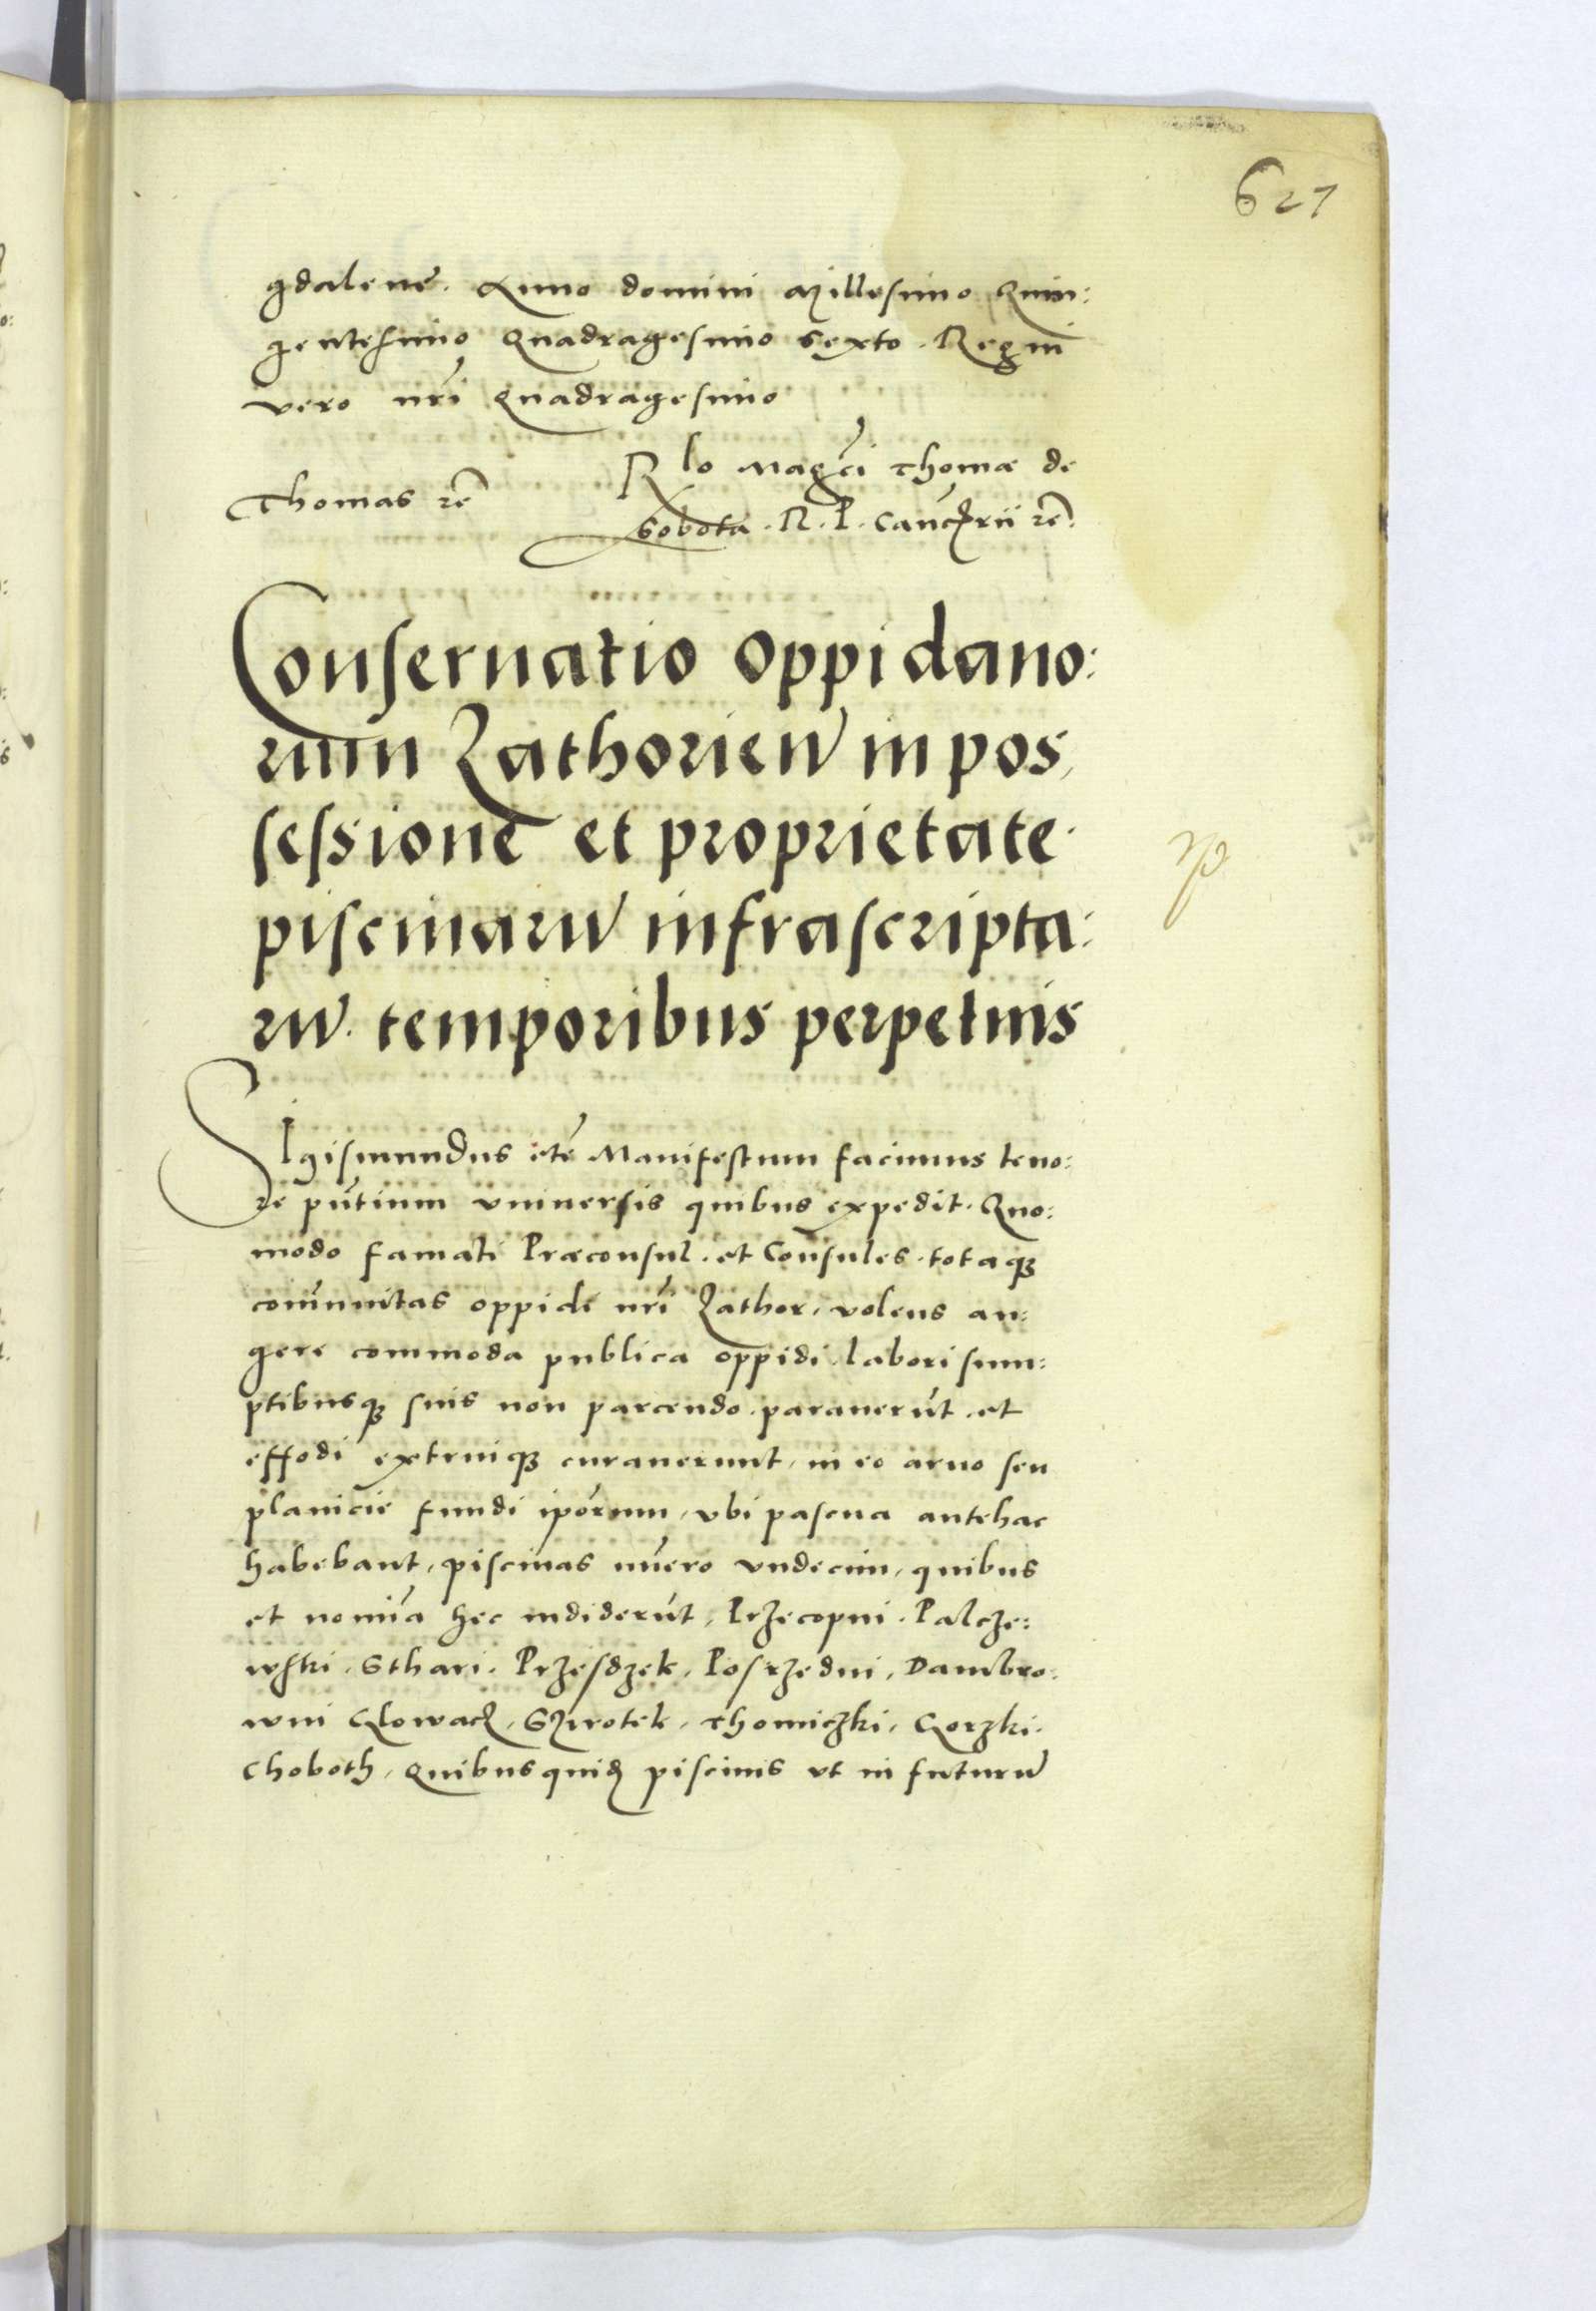 627
gdalene. Anno domini Millesimo Quin:
gentesimo Quadragesimo Sexto. Regni
vero nri Quadragesimo
Rlo Magci Thomæ de
Thomas rē
Sobota. R. P. Canclrii rē.
Conservatio Oppidano:
rum Zathorien in pos,
sessione et proprietate.
piscinarū infrascripta:
rū. temporibus perpetuis
Sigismundus etc̄ Manifestum facimus teno:
re pn̄tium vniversis quibus expedit. Quo:
modo famati Præconsul. et Consules. totaque
com̄unitas oppidi nrī Zathor, volens au:
gere commoda publica oppidi. labori sum:
ptibusque suis non parcendo. paraverūt. et
effodi extruique curaverunt, in eo arvo seu
planicie fundi ipōrum, vbi pascua antehac
habebant, piscinas nūero vndecim, quibus
et nomīa hec indiderūt, Przecopni. Palcze:
wski, Sthari. Przesdzek, Posrzedni, Dambro:
wni Glowacz, Szirotek, Thomiczki, Gorzki.
Choboth, Quibus quid piscinis vt in futurū